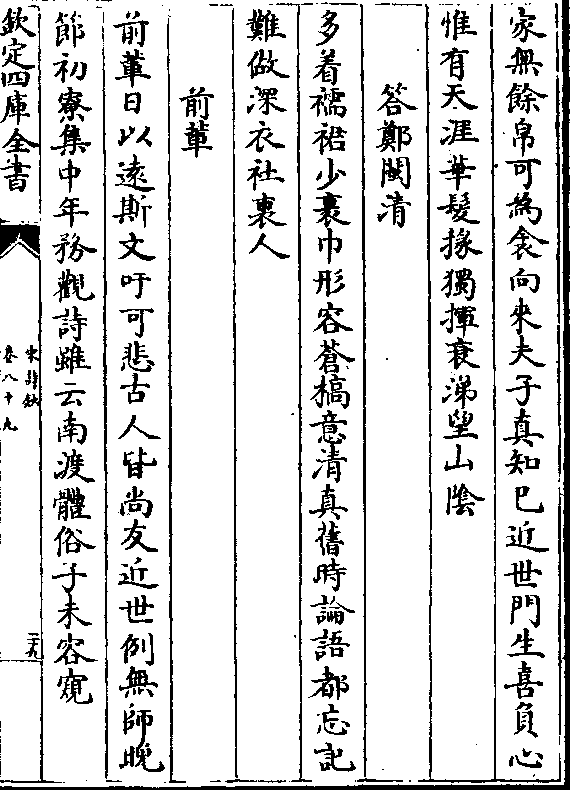 家無餘帛可為衾向來夫子真知已近世門生喜負心
惟有天涯華髮掾獨揮衰涕望山陰
答鄭閩清
多着襦裙少裹巾形容蒼槁意清真舊時論語都忘記
難做深衣社裏人
前輩
前輩日以遠斯文吁可悲古人皆尚友近世例無師晚
節初寮集中年務觀詩雖云南渡體俗子未容窺
欽定四庫全書
宋詩鈔
卷八十九
二十九